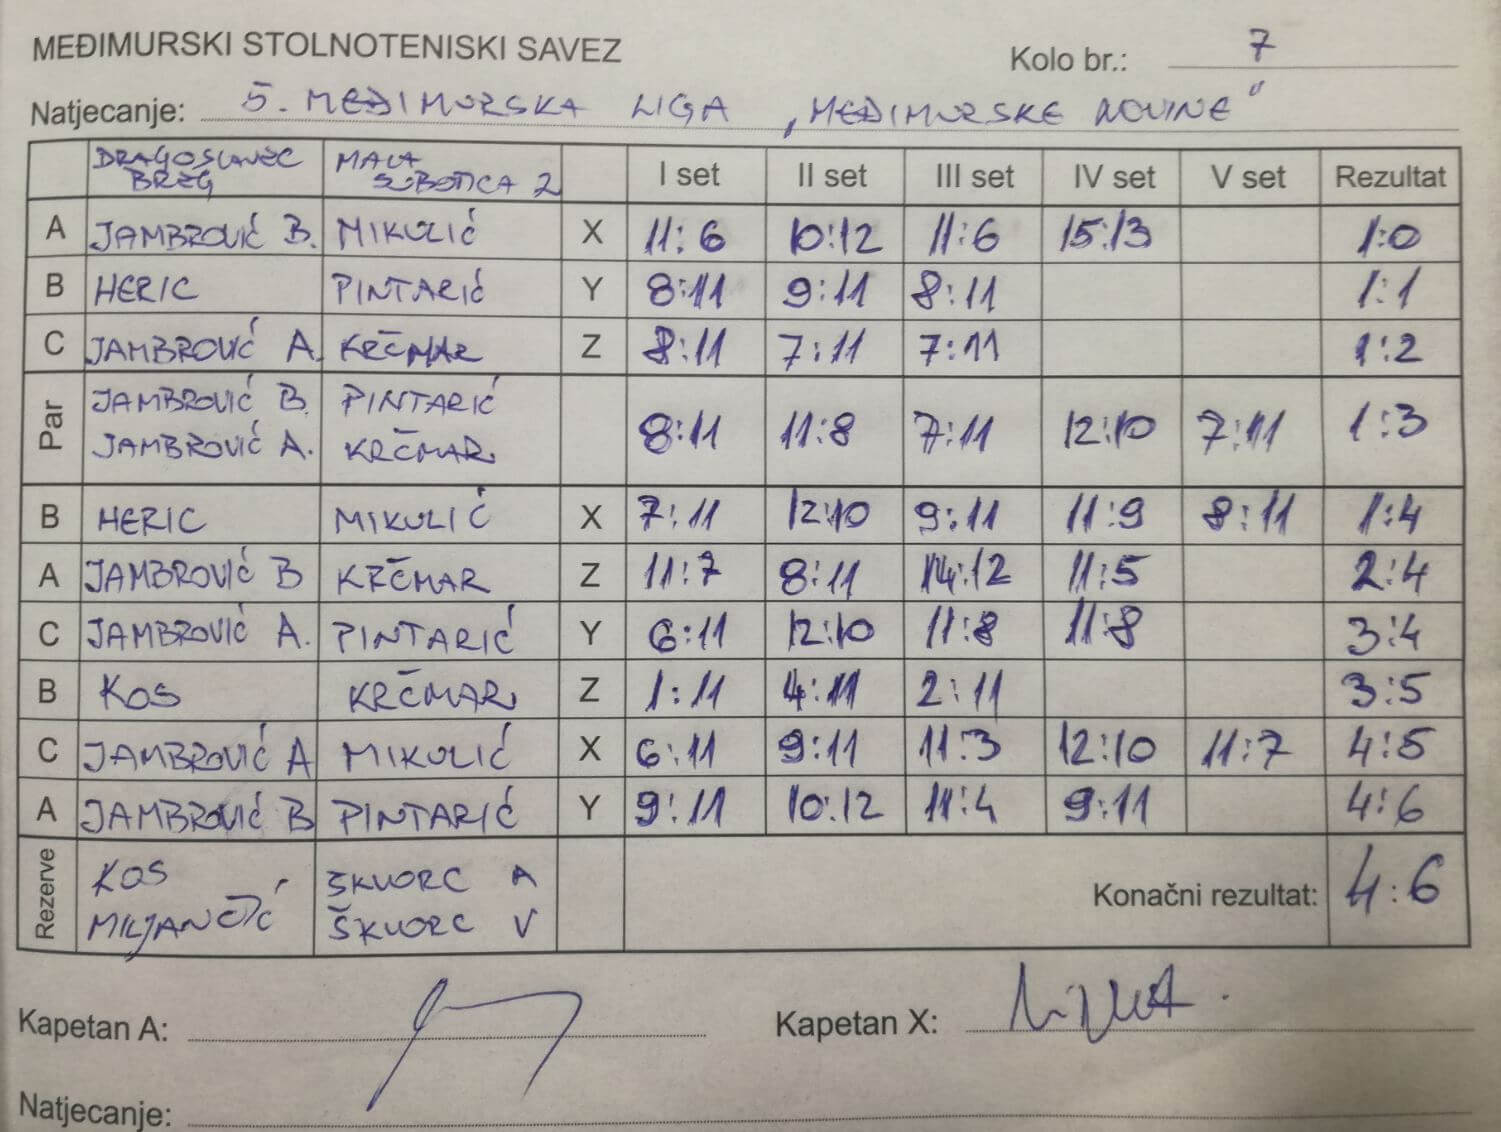 MEĐIMURSKI STOLNOTENISKI SAVEZ
Kolo br.: 7
Natjecanje: 5. MEĐIMURSKA LIGA „MEĐIMURSKE NOVINE"
DRAGOSLAVEC BREG MALA SUBOTICA 2 I set II set III set IV set V set Rezultat
A JAMBROVIĆ B. MIKULIĆ X 11:6 10:12 11:6 15:13 1:0
B HERIC PINTARIĆ Y 8:11 9:11 8:11 1:1
C JAMBROVIĆ A. KRČMAR Z 8:11 7:11 7:11 1:2
Par JAMBROVIĆ B. PINTARIĆ
JAMBROVIĆ A. KRČMAR 8:11 11:8 7:11 12:10 7:11 1:3
B HERIC MIKULIĆ X 7:11 12:10 9:11 11:9 8:11 1:4
A JAMBROVIĆ B KRČMAR Z 11:7 8:11 14:12 11:5 2:4
C JAMBROVIĆ A. PINTARIĆ Y 6:11 12:10 11:8 11:8 3:4
B KOS KRČMAR Z 1:11 4:11 2:11 3:5
C JAMBROVIĆ A MIKULIĆ X 6:11 9:11 11:3 12:10 11:7 4:5
A JAMBROVIĆ B PINTARIĆ Y 9:11 10:12 11:4 9:11 4:6
Rezerve KOS ŠKVORC A
MILJANČIĆ ŠKVORC V
Konačni rezultat: 4:6
Kapetan A:
Kapetan X:
Natjecanje: